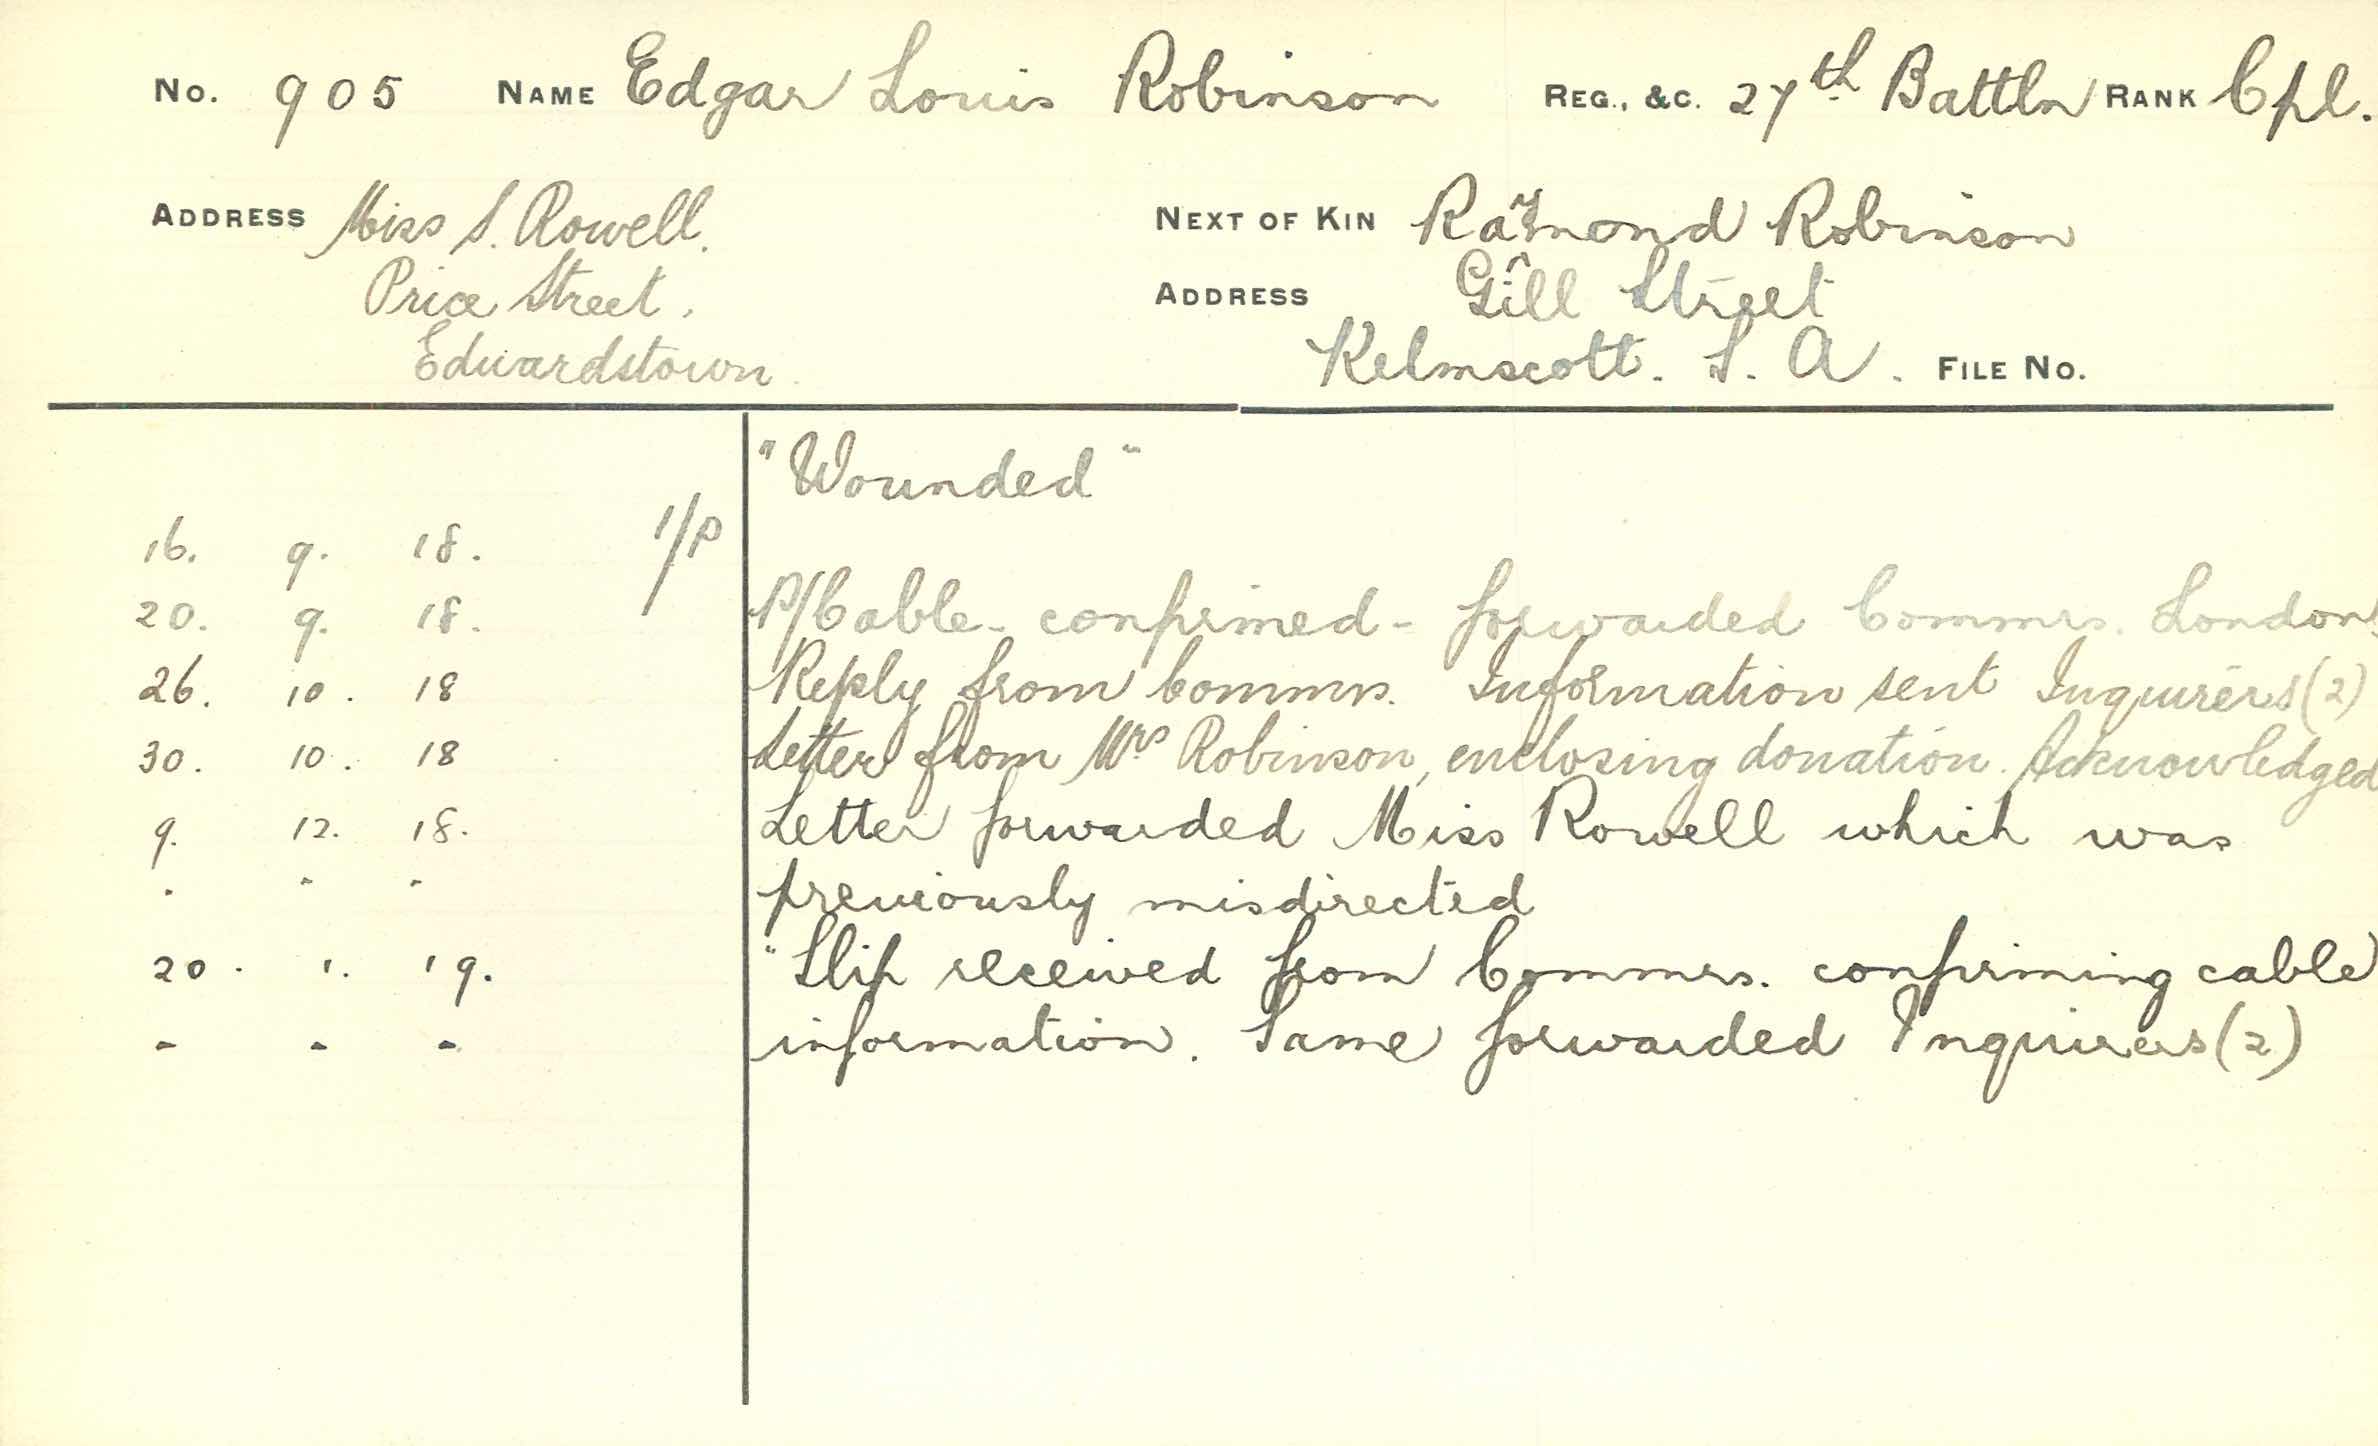 No. 905 NAME Edgar Louis Robinson REG., &C. 27th Battln RANK Cpl.
ADDRESS Miss S. Rowell. NEXT OF KIN Raymond Robinson
Price Street. ADDRESS Gill Street
Edwardstown. Kelmscott. S. A. FILE No.
"Wounded"
16. 9. 18. 1/P
20. 9. 18. P/Cable - confirmed - forwarded Commrs. London.
26. 10. 18 Reply from Commrs. Information sent Inquirers (2)
30. 10. 18 Letter from Mrs Robinson, enclosing donation. Acknowledged
9. 12. 18. Letter forwarded Miss Rowell which was
" " " previously misdirected
20. 1. 19. "Slip received from Commrs. confirming cable
" " " information. Same forwarded Inquirers (2)